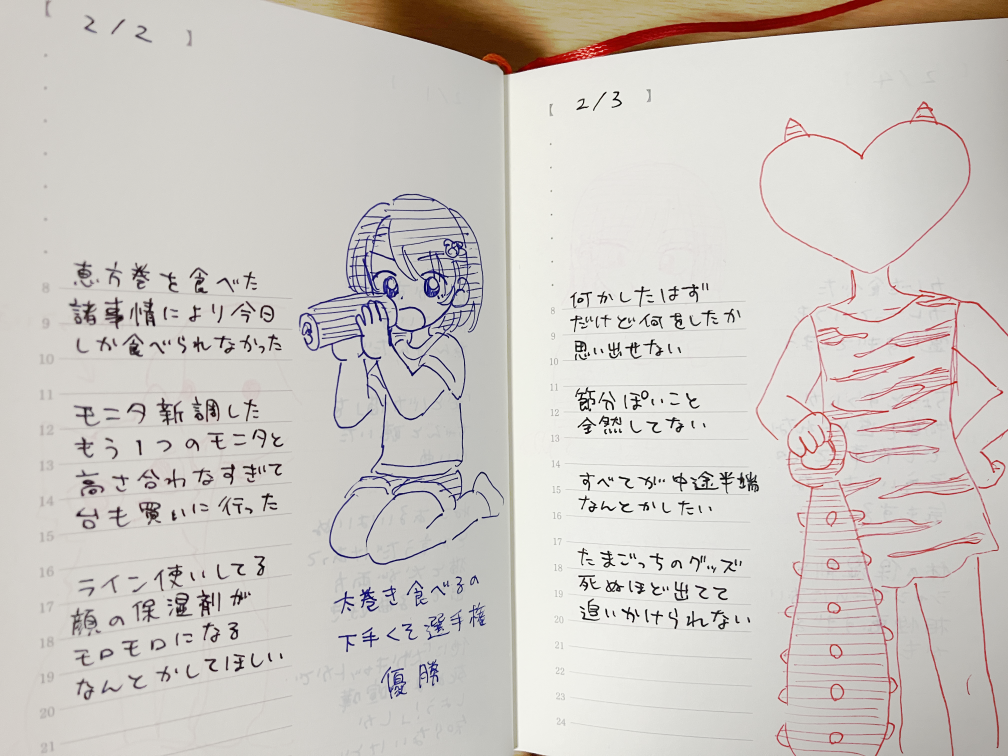 【 2/2 】
恵方巻を食べた
諸事情により今日
しか食べられなかった
モニタ新調した
もう1つのモニタと
高さ合わなすぎて
台も買いに行った
ライン使いしてる
顔の保湿剤が
モロモロになる
なんとかしてほしい
太巻き食べるの
下手くそ選手権
優勝
8
9
10
11
12
13
14
15
16
17
18
19
20
21
【 2/3 】
何かしたはず
だけど何をしたか
思い出せない
節分ぽいこと
全然してない
すべてが中途半端
なんとかしたい
たまごっちのグッズ
死ぬほど出てて
追いかけられない
8
9
10
11
12
13
14
15
16
17
18
19
20
21
22
23
24